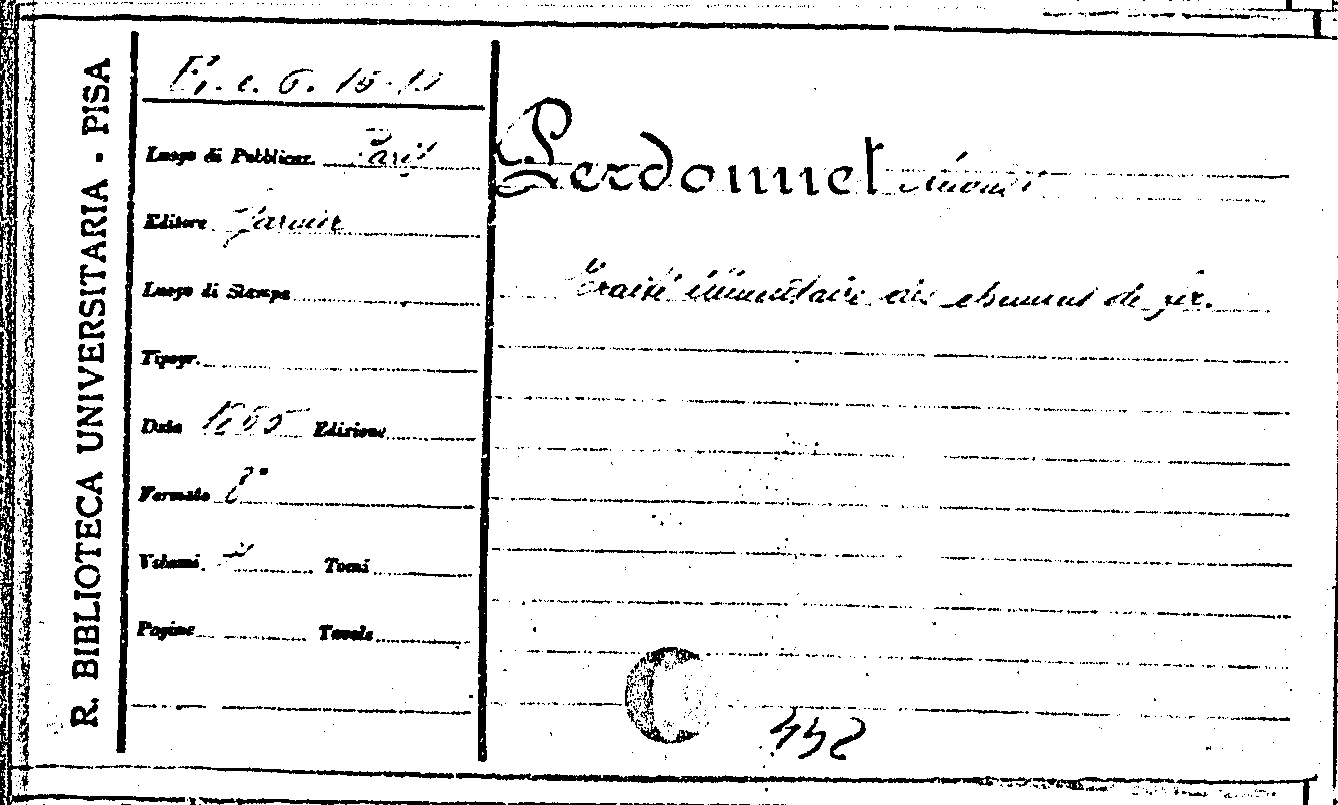 R. BIBLIOTECA UNIVERSITARIA - PISA
Luogo di Pubblicaz. Paris
Editore Garnier
Luogo di Stampa
Tipogr.
Data Edizione
Formato 8°
Volumi 2 Tomi
Pagine Tavole
Perdonnet
Traité élémentaire des chemins de fer.
442